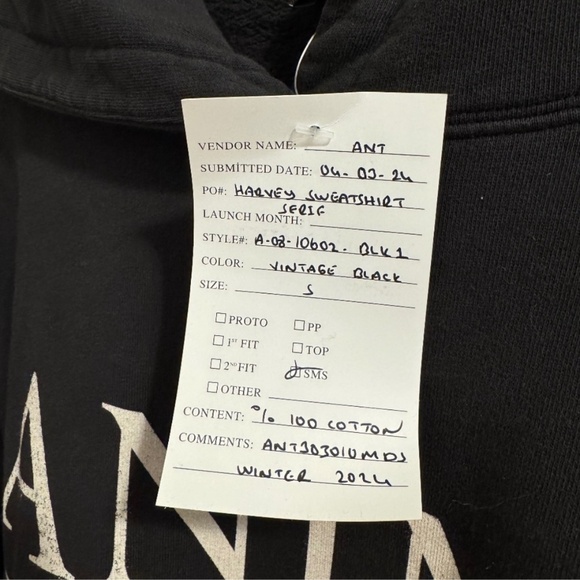 VENDOR NAME: ANT
SUBMITTED DATE: 04-03-24
PO#: HARVEY SWEATSHIRT
SERIF
LAUNCH MONTH:
STYLE#: A-08-10602-BLK1
COLOR: VINTAGE BLACK
SIZE: S
PROTO PP
1ST FIT TOP
2ND FIT SMS
OTHER
CONTENT: % 100 COTTON
COMMENTS:
WINTER 2024
ANIN